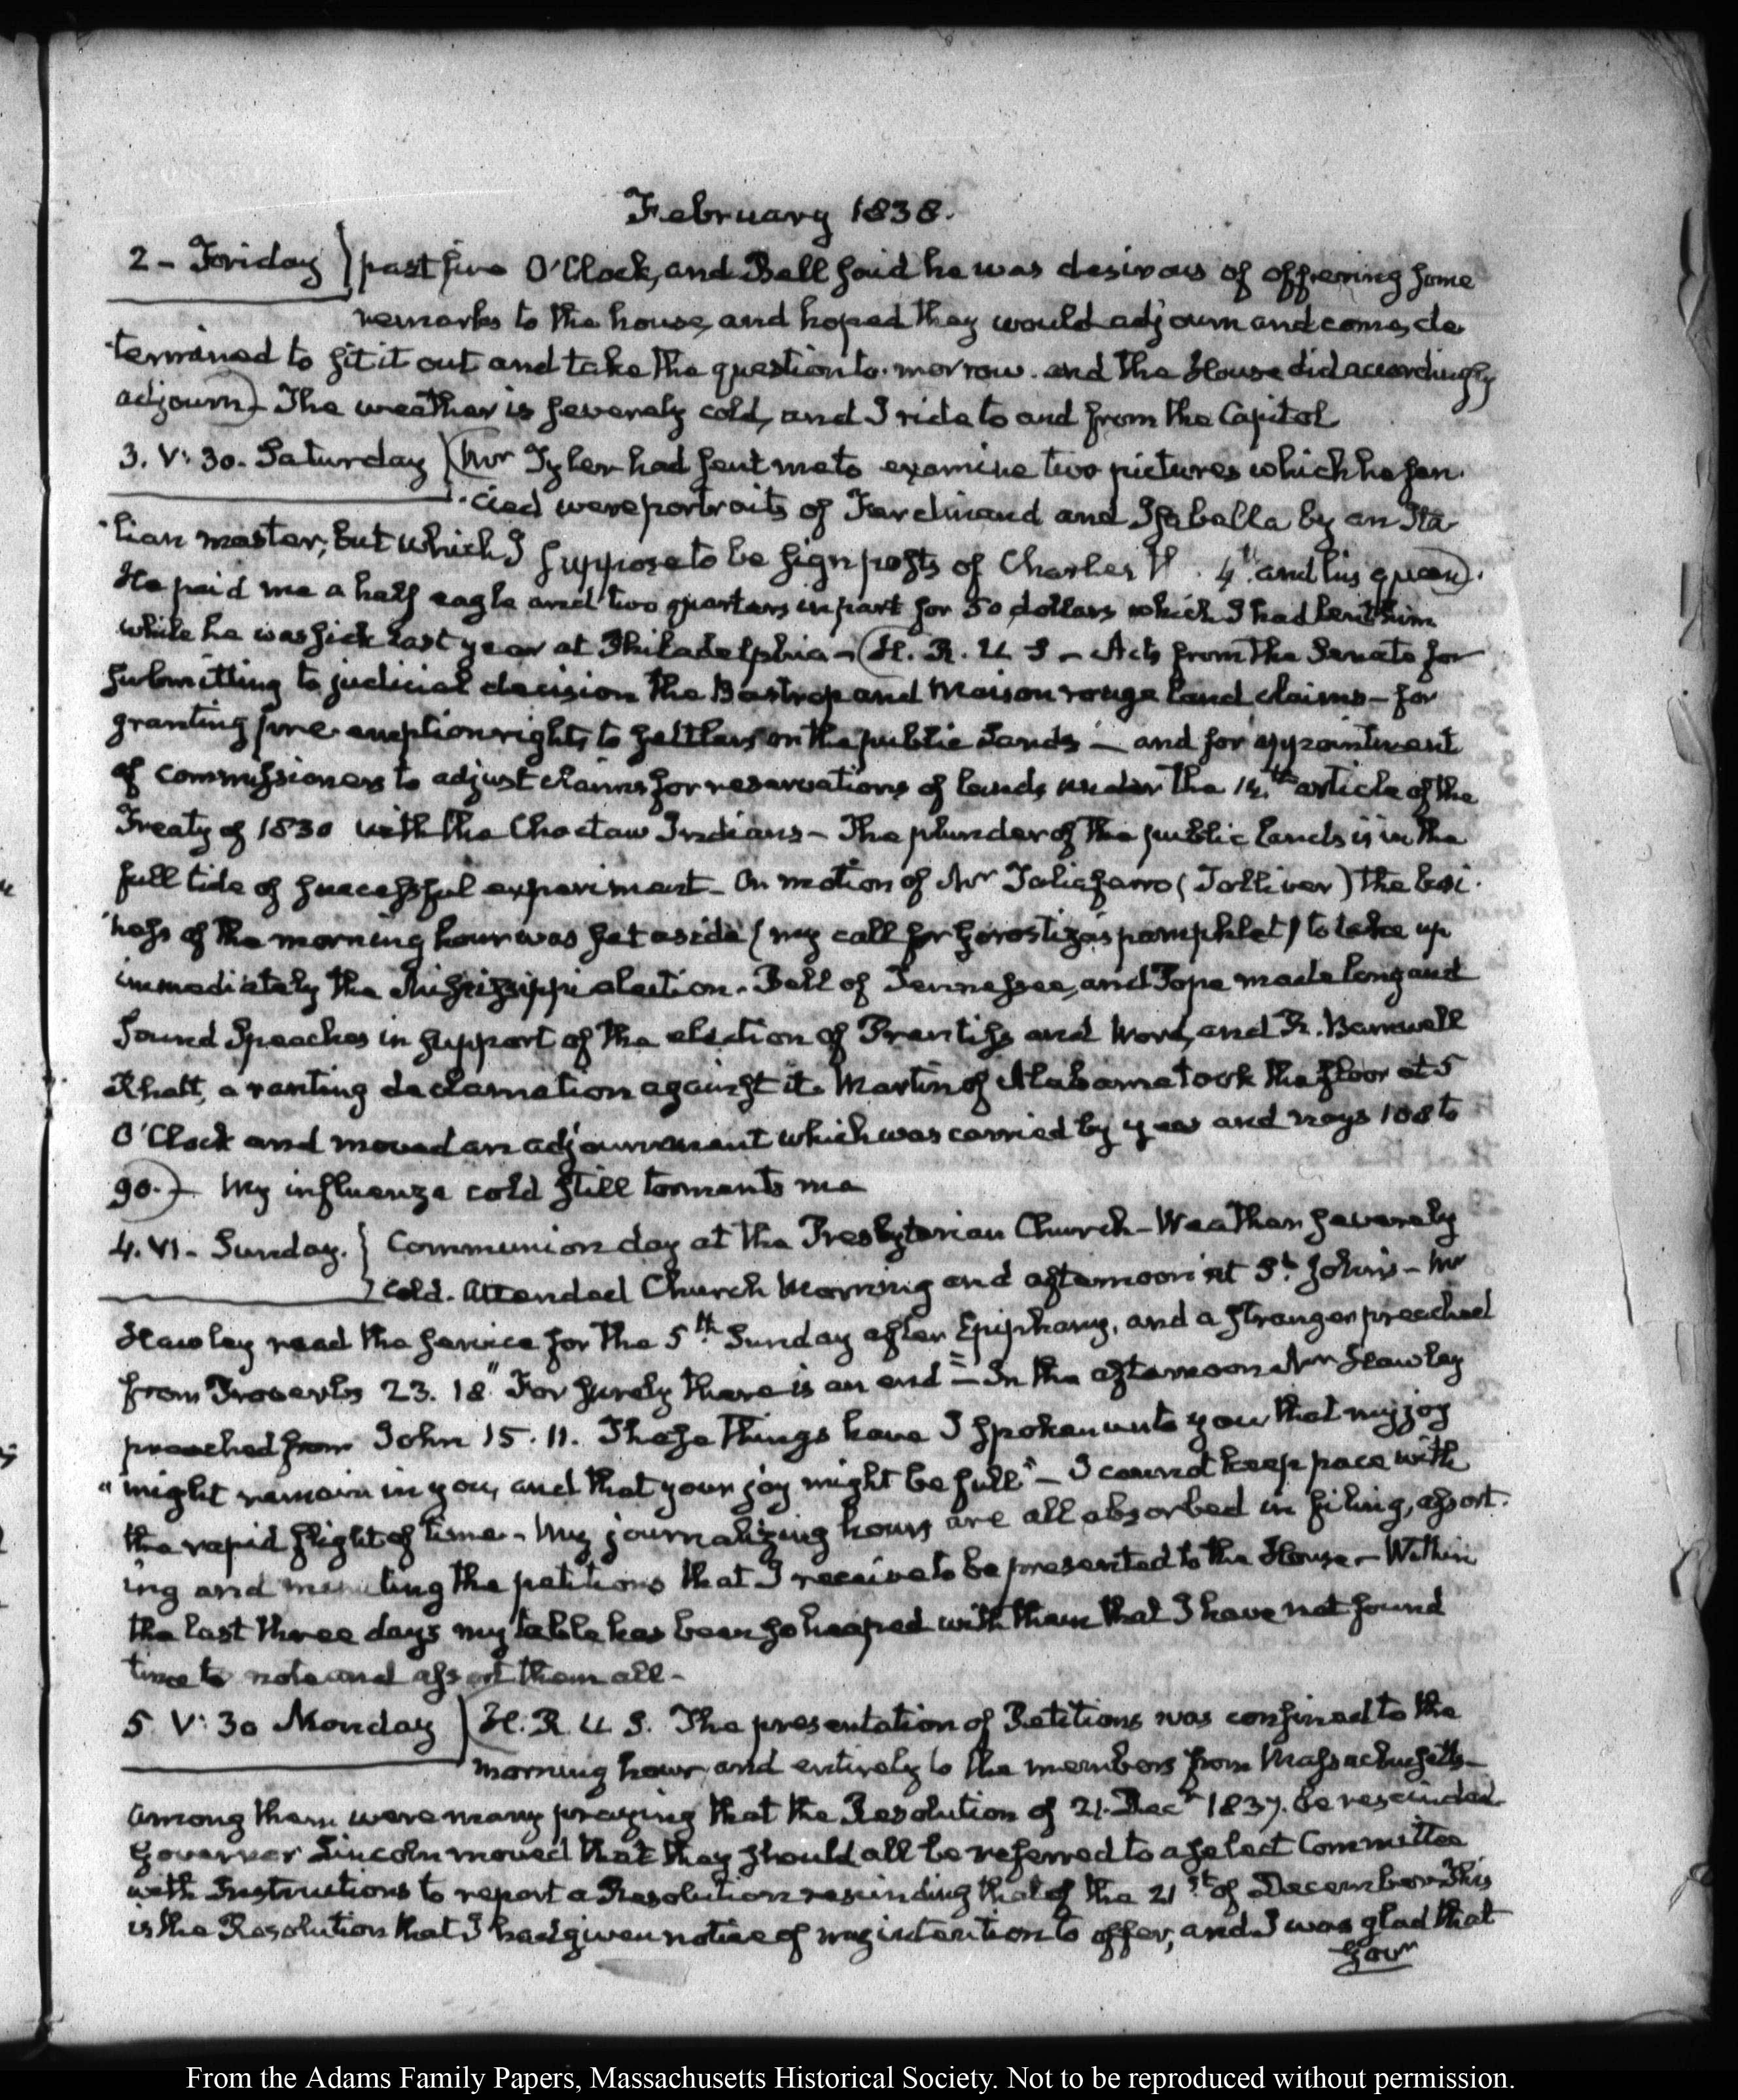 February 1838.
2 - Friday } past five O'Clock, and Bell said he was desirous of offering some
remarks to the house, and hoped they would adjourn and come, de
termined to sit it out and take the question to-morrow. and the House did accordingly
adjourn) - The weather is severely cold, and I ride to and from the Capitol
3. V: 30. Saturday } (Mr Tyler had sent me to examine two pictures which he fan-
cied were portraits of Ferdinand and Isabella by an Ita
lian master; but which I suppose to be sign posts of Charles 4th and his queen).
He paid me a half eagle and two quarters in part for 50 dollars which I had lent him
while he was sick last year at Philadelphia - (H. R. U S - Acts from the Senate for
submitting to judicial decision the Bastrop and Maison rouge land claims - for
granting pre-emption rights to settlers on the public Lands - and for appointment
of commissioners to adjust claims for reservations of lands under the 14.th article of the
Treaty of 1830 with the Choctaw Indians - The plunder of the public lands is in the
full tide of successful experiment - On motion of Mr Taliaferro (Tolliver) the busi-
ness of the morning hour was set aside (my call for Gorostiza's pamphlet) to take up
immediately the Mississippi election. Bell of Tennessee, and Pope made long and
sound Speeches in support of the election of Prentiss and Word, and R. Barnwell
Rhett, a ranting declamation against it. Martin of Alabama took the floor at 5
O'Clock and moved an adjournment which was carried by yeas and nays 108 to
90.) - My influenza cold still torments me
4. VI - Sunday. } Communion day at the Presbyterian Church - Weather severely
cold. Attended Church Morning and afternoon at St. John's - Mr
Hawley read the service for the 5.th Sunday after Epiphany, and a stranger preached
from Proverbs 23. 18 "For surely there is an end" - In the afternoon Mr Hawley
preached from John 15. 11. These things have I spoken unto you, that my joy
"might remain in you, and that your joy might be full" - I cannot keep pace with
the rapid flight of time - My journalizing hours are all absorbed in filing, assort-
ing and minuting the petitions that I receive to be presented to the House - Within
the last three days my table has been so heaped with them that I have not found
time to note and assort them all -
5 V: 30 Monday } H. R. U S. The presentation of Petitions was confined to the
morning hour, and entirely to the members from Massachusetts -
Among them were many praying that the Resolution of 21. Decr 1837. be rescinded
Governor Lincoln moved that they should all be referred to a select Committee
with Instructions to report a Resolution rescinding that of the 21st of December This
is the Resolution that I had given notice of my intention to offer, and I was glad that
Govr
From the Adams Family Papers, Massachusetts Historical Society. Not to be reproduced without permission.